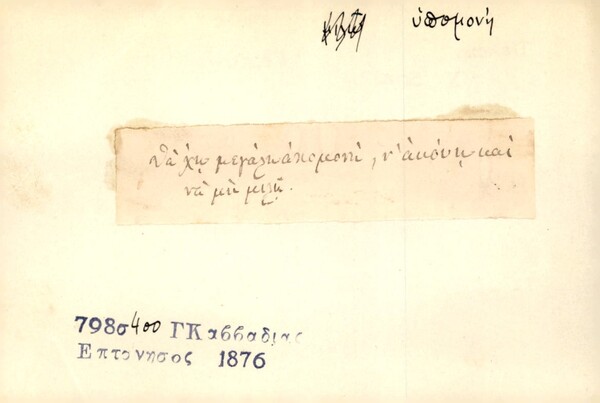 ὑπομονή
Νὰ χῃ μεγάλη ἀπομονή, ν' ἀκούῃ καὶ
νὰ μὴ μιλῇ.
798σ400 ΓΚαββαδιας
Επτονησος 1876